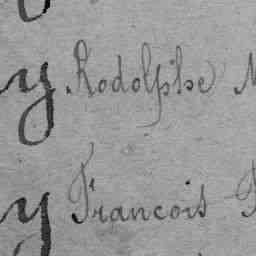 y Rodolphe M
y Francois